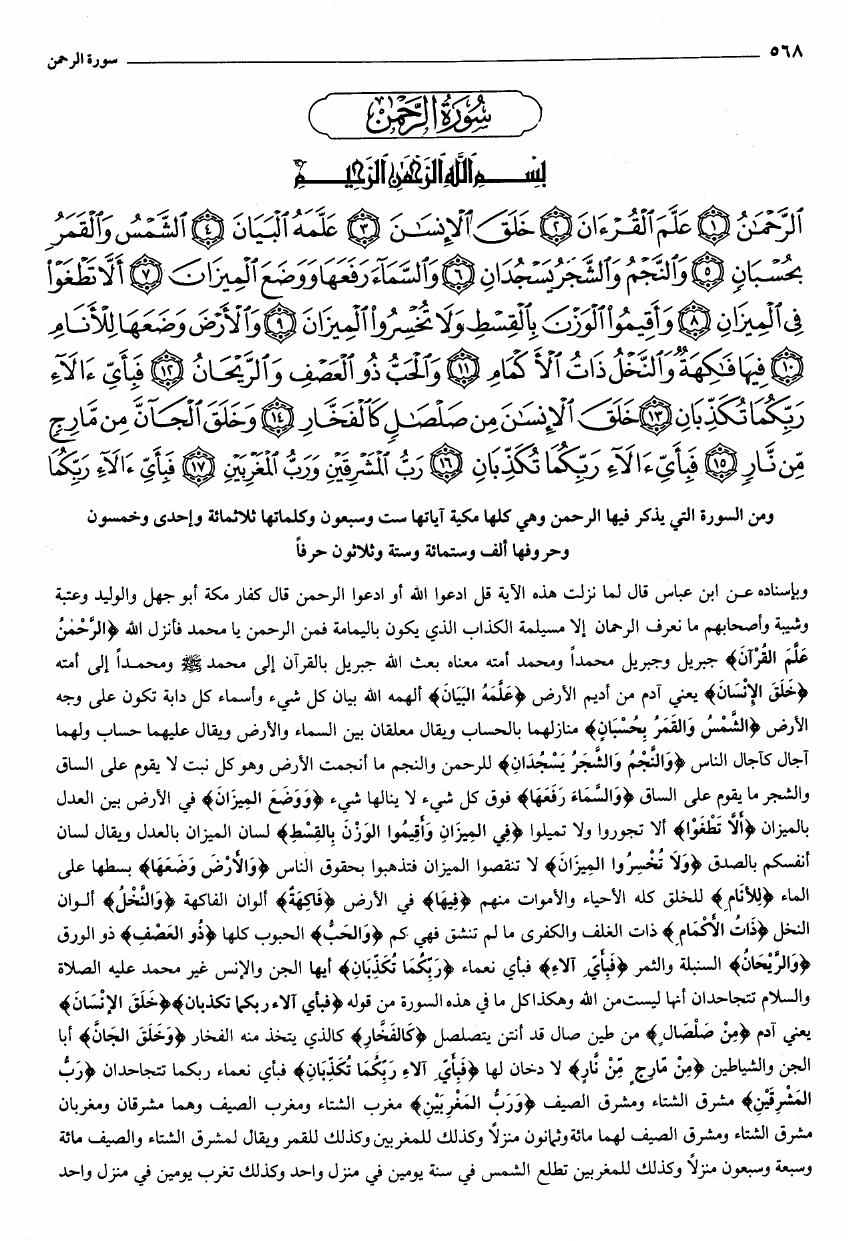 ٥٦٨ سورة الرحمن
سُورَةُ الرَّحْمٰن
بِسْمِ اللَّهِ الرَّحْمَٰنِ الرَّحِيمِ
ٱلرَّحْمَـٰنُ ﴿١﴾ عَلَّمَ ٱلْقُرْءَانَ ﴿٢﴾ خَلَقَ ٱلْإِنسَـٰنَ ﴿٣﴾ عَلَّمَهُ ٱلْبَيَانَ ﴿٤﴾ ٱلشَّمْسُ وَٱلْقَمَرُ
بِحُسْبَانٍ ﴿٥﴾ وَٱلنَّجْمُ وَٱلشَّجَرُ يَسْجُدَانِ ﴿٦﴾ وَٱلسَّمَآءَ رَفَعَهَا وَوَضَعَ ٱلْمِيزَانَ ﴿٧﴾ أَلَّا تَطْغَوْا۟
فِى ٱلْمِيزَانِ ﴿٨﴾ وَأَقِيمُوا۟ ٱلْوَزْنَ بِٱلْقِسْطِ وَلَا تُخْسِرُوا۟ ٱلْمِيزَانَ ﴿٩﴾ وَٱلْأَرْضَ وَضَعَهَا لِلْأَنَامِ
﴿١٠﴾ فِيهَا فَـٰكِهَةٌ وَٱلنَّخْلُ ذَاتُ ٱلْأَكْمَامِ ﴿١١﴾ وَٱلْحَبُّ ذُو ٱلْعَصْفِ وَٱلرَّيْحَانُ ﴿١٢﴾ فَبِأَىِّ ءَالَآءِ
رَبِّكُمَا تُكَذِّبَانِ ﴿١٣﴾ خَلَقَ ٱلْإِنسَـٰنَ مِن صَلْصَـٰلٍ كَٱلْفَخَّارِ ﴿١٤﴾ وَخَلَقَ ٱلْجَآنَّ مِن مَّارِجٍ
مِّن نَّارٍ ﴿١٥﴾ فَبِأَىِّ ءَالَآءِ رَبِّكُمَا تُكَذِّبَانِ ﴿١٦﴾ رَبُّ ٱلْمَشْرِقَيْنِ وَرَبُّ ٱلْمَغْرِبَيْنِ ﴿١٧﴾ فَبِأَىِّ ءَالَآءِ رَبِّكُمَا
ومن السورة التي يذكر فيها الرحمن وهي كلها مكية آياتها ست وسبعون وكلماتها ثلاثمائة وإحدى وخمسون
وحروفها ألف وستمائة وستة وثلاثون حرفاً
وبإسناده عن ابن عباس قال لما نزلت هذه الآية قل ادعوا الله أو ادعوا الرحمن قال كفار مكة أبو جهل والوليد وعتبة
وشيبة وأصحابهم ما نعرف الرحمان إلا مسيلمة الكذاب الذي يكون باليمامة فمن الرحمن يا محمد فأنزل الله ﴿الرَّحْمٰنُ
عَلَّمَ القُرْآنَ﴾ جبريل وجبريل محمداً ومحمد أمته معناه بعث الله جبريل بالقرآن إلى محمد ﷺ ومحمداً إلى أمته
﴿خَلَقَ الإِنْسَانَ﴾ يعني آدم من أديم الأرض ﴿عَلَّمَهُ البَيَانَ﴾ ألهمه الله بيان كل شيء وأسماء كل دابة تكون على وجه
الأرض ﴿الشَّمْسُ وَالقَمَرُ بِحُسْبَانٍ﴾ منازلهما بالحساب ويقال معلقان بين السماء والأرض ويقال عليهما حساب ولهما
آجال كآجال الناس ﴿وَالنَّجْمُ وَالشَّجَرُ يَسْجُدَانِ﴾ للرحمن والنجم ما أنجمت الأرض وهو كل نبت لا يقوم على الساق
والشجر ما يقوم على الساق ﴿وَالسَّمَاءَ رَفَعَهَا﴾ فوق كل شيء لا ينالها شيء ﴿وَوَضَعَ المِيزَانَ﴾ في الأرض بين العدل
بالميزان ﴿أَلَّا تَطْغَوْا﴾ ألا تجوروا ولا تميلوا ﴿فِي المِيزَانِ وَأَقِيمُوا الوَزْنَ بِالقِسْطِ﴾ لسان الميزان بالعدل ويقال لسان
أنفسكم بالصدق ﴿وَلَا تُخْسِرُوا المِيزَانَ﴾ لا تنقصوا الميزان فتذهبوا بحقوق الناس ﴿وَالأَرْضَ وَضَعَهَا﴾ بسطها على
الماء ﴿لِلأَنَامِ﴾ للخلق كله الأحياء والأموات منهم ﴿فِيهَا﴾ في الأرض ﴿فَاكِهَةٌ﴾ ألوان الفاكهة ﴿وَالنَّخْلُ﴾ ألوان
النخل ﴿ذَاتُ الأَكْمَامِ﴾ ذات الغلف والكفرى ما لم تنشق فهي كم ﴿وَالحَبُّ﴾ الحبوب كلها ﴿ذُو العَصْفِ﴾ ذو الورق
﴿وَالرَّيْحَانُ﴾ السنبلة والثمر ﴿فَبِأَيِّ آلاَءِ﴾ فبأي نعماء ﴿رَبِّكُمَا تُكَذِّبَانِ﴾ أيها الجن والإنس غير محمد عليه الصلاة
والسلام تتجاحدان أنها ليست من الله وهكذا كل ما في هذه السورة من قوله ﴿فبأي آلاء ربكما تكذبان﴾ ﴿خَلَقَ الإِنْسَانَ﴾
يعني آدم ﴿مِنْ صَلْصَالٍ﴾ من طين صال قد أنتن يتصلصل ﴿كَالفَخَّارِ﴾ كالذي يتخذ منه الفخار ﴿وَخَلَقَ الجَانَّ﴾ أبا
الجن والشياطين ﴿مِنْ مَّارِجٍ مِّنْ نَّارٍ﴾ لا دخان لها ﴿فَبِأَيِّ آلَاءِ رَبِّكُمَا تُكَذِّبَانِ﴾ فبأي نعماء ربكما تتجاحدان ﴿رَبُّ
المَشْرِقَيْنِ﴾ مشرق الشتاء ومشرق الصيف ﴿وَرَبُّ المَغْرِبَيْنِ﴾ مغرب الشتاء ومغرب الصيف وهما مشرقان ومغربان
مشرق الشتاء ومشرق الصيف لهما مائة وثمانون منزلاً وكذلك للمغربين وكذلك للقمر ويقال لمشرق الشتاء والصيف مائة
وسبعة وسبعون منزلاً وكذلك للمغربين تطلع الشمس في سنة يومين في منزل واحد وكذلك تغرب يومين في منزل واحد